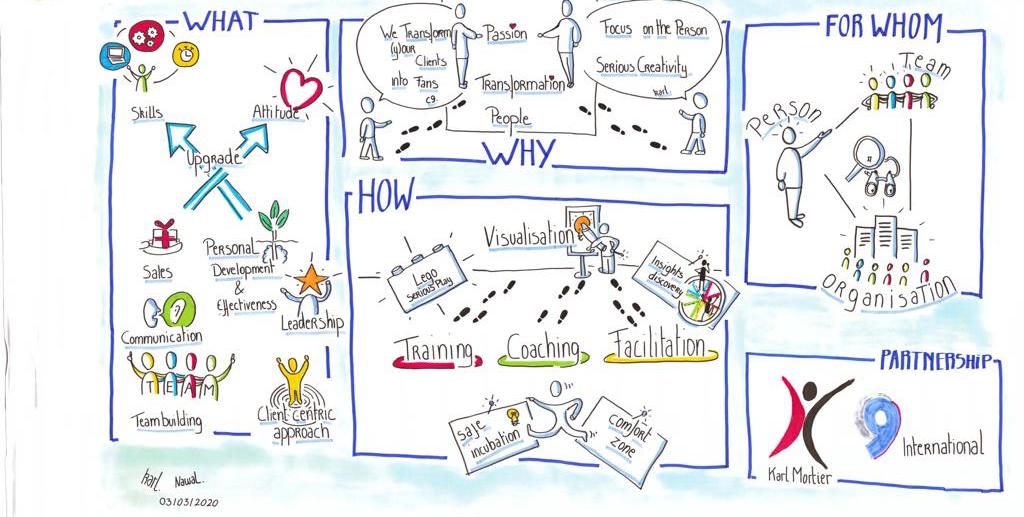 WHAT
Skills
Attitude
Upgrade
Sales
Personal
Development
&
Effectiveness
Leadership
Communication
TEAM
Teambuilding
Client centric
approach
Karl Nawal
03/03/2020
We Transform
(y)our
Clients
into Fans
C9
Passion
Transformation
People
Focus on the Person
Serious Creativity
Karl
WHY
HOW
Visualisation
Lego
Serious Play
Insights
discovery
Training
Coaching
Facilitation
safe
incubation
comfort
zone
FOR WHOM
Team
Person
Organisation
PARTNERSHIP
Karl Mortier
9
International